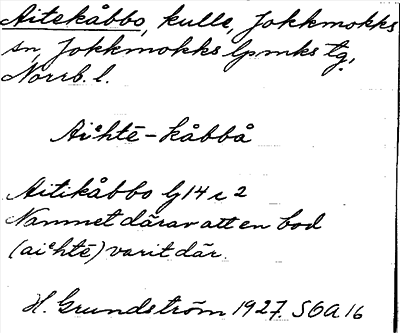 Aitekåbbo, kulle, Jokkmokks
sn, Jokkmokks lpmks tg,
Norrb. l.
Aiḥtē-kåbbå
Aitikåbbo lj 14 c 2
Namnet därav att en bod
(aiḥtē) varit där.
H. Grundström 1927. SOA 16